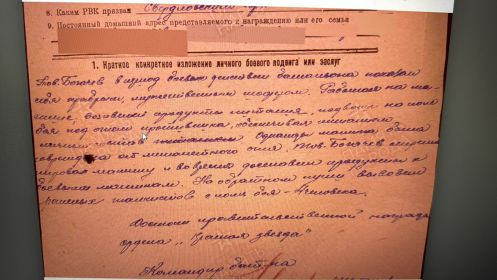 8. Каким РВК призван Свердловским
9. Постоянный домашний адрес представляемого к награждению или его семьи
1. Краткое конкретное изложение личного боевого подвига или заслуг
Тов. Богачев в период боевых действий батальона показал
себя храбрым, мужественным шофером. Работая на ма-
шине возил продукты питания, подвозя на поле
боя под огнем противника, обеспечивая питанием
личный состав Однажды машина была
повреждена от минометного огня. Тов. Богачев
машину и во время доставил продукты к
боевым машинам. На обратном пути вывозил
раненых танкистов с поля боя - 4 человека.
Достоин правительственной награды
ордена „Красная звезда"
Командир бат-на